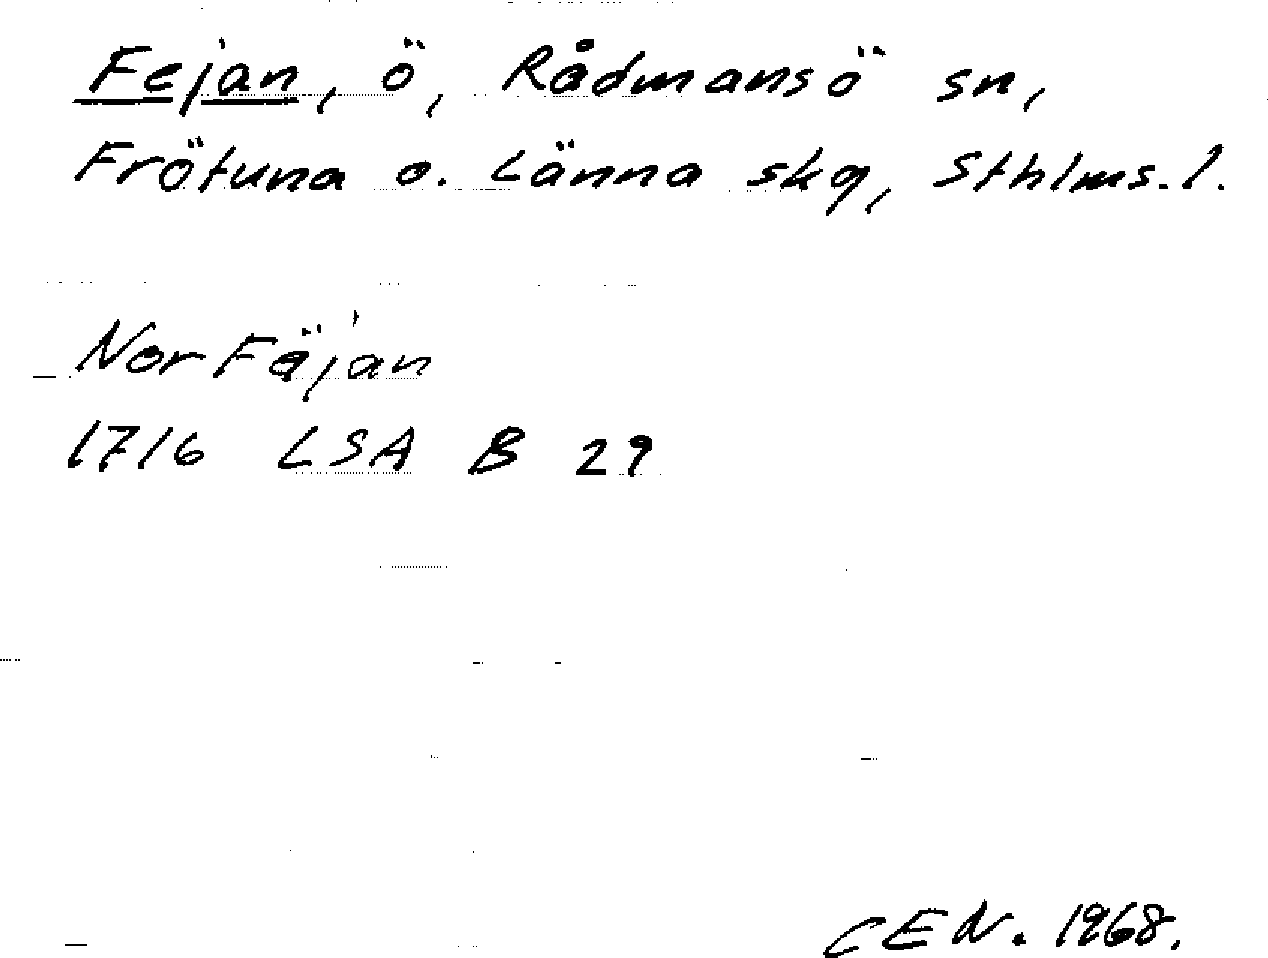 Fejan, ö, Rådmansö sn,
Frötuna o. Länna skg, Sthlms. l.
Nor Fäjan
1716 LSA B 29
CEN. 1968.